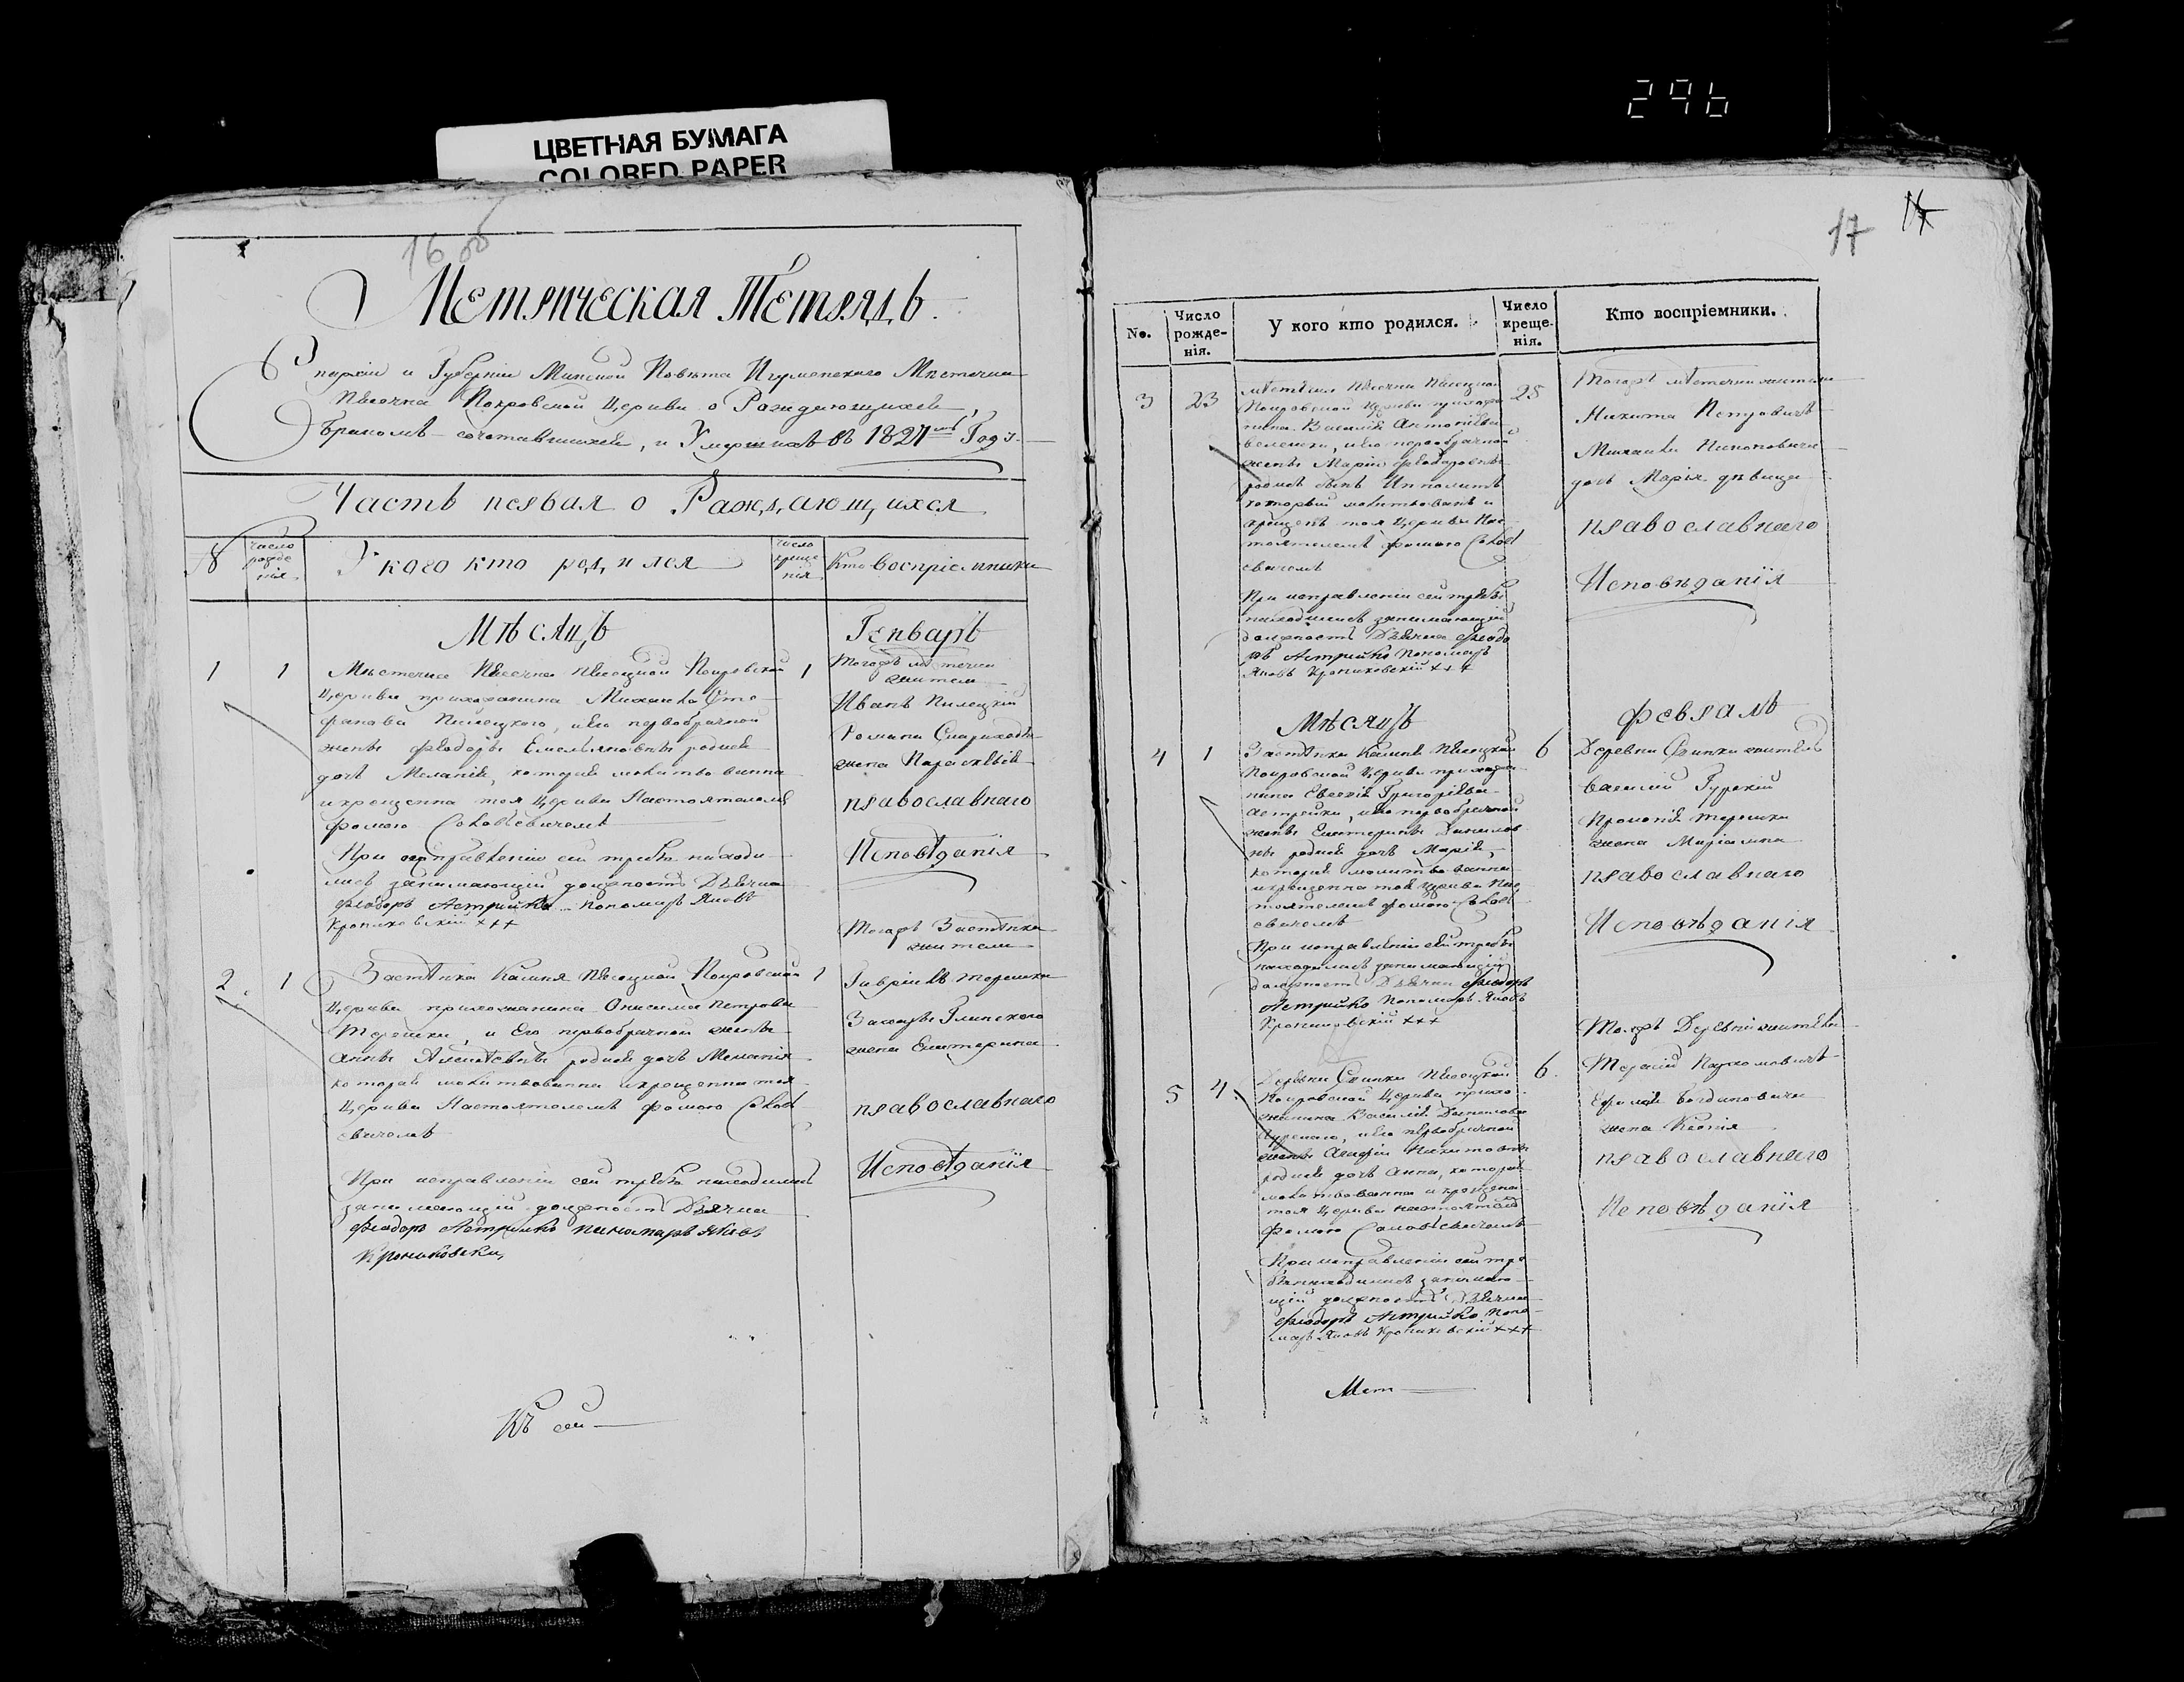 296
ЦВЕТНАЯ БУМАГА
COLORED PAPER
16 об
Метрическая Тетрадь.
Епархіи и Губерніи Минской Повѣта Игуменскаго Мѣстечка
Пѣсочна Покровской Церкви о Рождающихся,
Бракомъ сочетавшихся, и Умершихъ въ 1827мъ Годѣ
Часть первая о Раждающихся
N
Число рожденія
У кого кто родился
Число крещенія
Кто воспріемники
Мѣсяць
Генварь
1 1
Мѣстечка Пѣсочна Пѣсоцкой Покровской
Церкви прихожанина Михаила Сте-
фанова Пилецкаго, и Его первобрачной
жены Феодоры Емельяновны родися
дочь Меланія, которая молитвованна
и крещенна тоя Церкви Настоятелемъ
Фомою
При исправленіи сей требы находи-
лись занимающій должность Дьячка
Феодоръ Астрейко пономарь Яковъ
+++
1
Тогожъ мѣстечка
жители
Иванъ Пилецкій
Романа
жена Параскевія
православнаго
Исповѣданія
2. 1
Застѣнка Камня Пѣсоцкой Покровской
Церкви прихожанина Онисима Петрова
Терешки, и Его первобрачной жены
Анны Алексѣевны родися дочь Меланія
которая молитвованна и крещенна тоя
Церкви Настоятелемъ Фомою
При исправленіи сей требы находились
занимающій должность Дьячка
Феодоръ Астрейко пономарь Яковъ
1
Тогожъ Застѣнка
жители
Гавріилъ Терешка
Захары Глинскаго
жена Екатерина
православнаго
Исповѣданія
Къ сей
17
No.
Число рожде-
нія.
У кого кто родился.
Число креще-
нія.
Кто воспріемники.
3 23
мѣстечка Пѣсочна Пѣсоцкой
Покровской Церкви прихожа
нина Василія Антоніева
и Его первобрачной
жены Маріи Феодоровны
родись сынъ Ипполитъ
который молитвованъ и
крещенъ тоя Церкви Нас-
тоятелемъ Фомою
При исправленіи сей требы
находились занимающій
должность Дьячка Феодо
ръ Астрейко Пономарь
Яковъ +++
25
Тогожъ мѣстечка жители
Никита Петровичъ
Михаила
дочь Марія дѣвица
православнаго
Исповѣданія
Мѣсяць
Февраль
4 1
Застѣнка Камня Пѣсоцкой
Покровской Церкви прихожа-
нина Евсевія Григоріева
Астрейки, и Его первобрачной
жены Екатерины Данилов-
ны родися дочь Марія,
которая молитвованна
и крещенна тоя Церкви Нас-
тоятелемъ Фомою
При исправленіи сей требы
находились занимающій
должность Дьячка Феодоръ
Астрейко Пономарь Яковъ
+++
6
Деревни жители
Василій Гурскій
Прокопія Терешки
жена Маріанна
православнаго
Исповѣданія
5 4.
Деревни Пѣсоцкой
Покровской Церкви прихо-
жанина Василія
Гурскаго, и Его первобрачной
жены Агафіи Никитовны
родися дочь Анна, которая
молитвованна и крещена
тоя Церкви настоятелемъ
Фомою
При исправленіи сей тре-
бы находились занимаю-
щій должность Дьячка
Феодоръ Астрейко, Поно-
марь Яковъ +++
6.
Тоежъ Деревни жители
жена Ксенія
православнаго
Исповѣданія
Мет